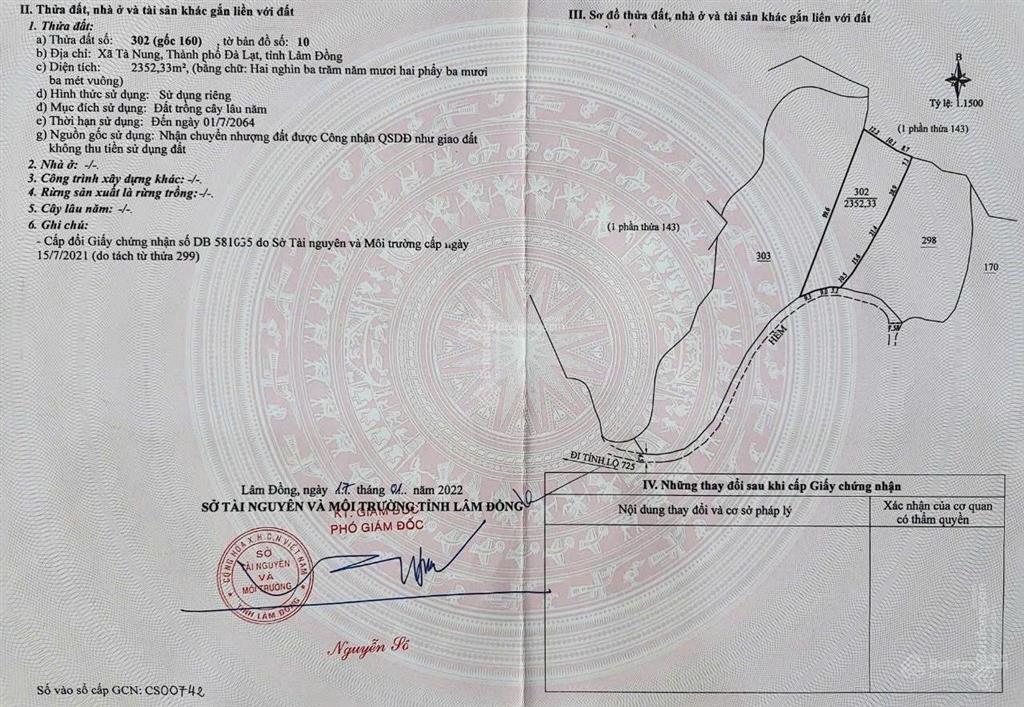 II. Thửa đất, nhà ở và tài sản khác gắn liền với đất
1. Thửa đất:
a) Thửa đất số: 302 (gốc 160) , tờ bản đồ số: 10
b) Địa chỉ: Xã Tà Nung, Thành phố Đà Lạt, tỉnh Lâm Đồng
c) Diện tích: 2352,33m², (bằng chữ: Hai nghìn ba trăm năm mươi hai phẩy ba mươi
ba mét vuông)
d) Hình thức sử dụng: Sử dụng riêng
đ) Mục đích sử dụng: Đất trồng cây lâu năm
e) Thời hạn sử dụng: Đến ngày 01/7/2064
g) Nguồn gốc sử dụng: Nhận chuyển nhượng đất được Công nhận QSDĐ như giao đất
không thu tiền sử dụng đất
2. Nhà ở: -/-.
3. Công trình xây dựng khác: -/-.
4. Rừng sản xuất là rừng trồng: -/-.
5. Cây lâu năm: -/-.
6. Ghi chú:
- Cấp đổi Giấy chứng nhận số DB 581035 do Sở Tài nguyên và Môi trường cấp ngày
15/7/2021 (do tách từ thửa 299)
Lâm Đồng, ngày 17 tháng 01 năm 2022
SỞ TÀI NGUYÊN VÀ MÔI TRƯỜNG TỈNH LÂM ĐỒNG
KT. GIÁM ĐỐC
PHÓ GIÁM ĐỐC
CỘNG HÒA X.H.C.N VIỆT NAM
SỞ
TÀI NGUYÊN
VÀ
MÔI TRƯỜNG
TỈNH LÂM ĐỒNG
Nguyễn
Số vào sổ cấp GCN: CS00742
III. Sơ đồ thửa đất, nhà ở và tài sản khác gắn liền với đất
B
Tỷ lệ: 1.1500
(1 phần thửa 143)
12.2
10.1
8.7
7.2
302
2352,33
(1 phần thửa 143)
298
303
170
HẺM
ĐI TỈNH LỘ 725
IV. Những thay đổi sau khi cấp Giấy chứng nhận
Nội dung thay đổi và cơ sở pháp lý
Xác nhận của cơ quan
có thẩm quyền
Batdongsan